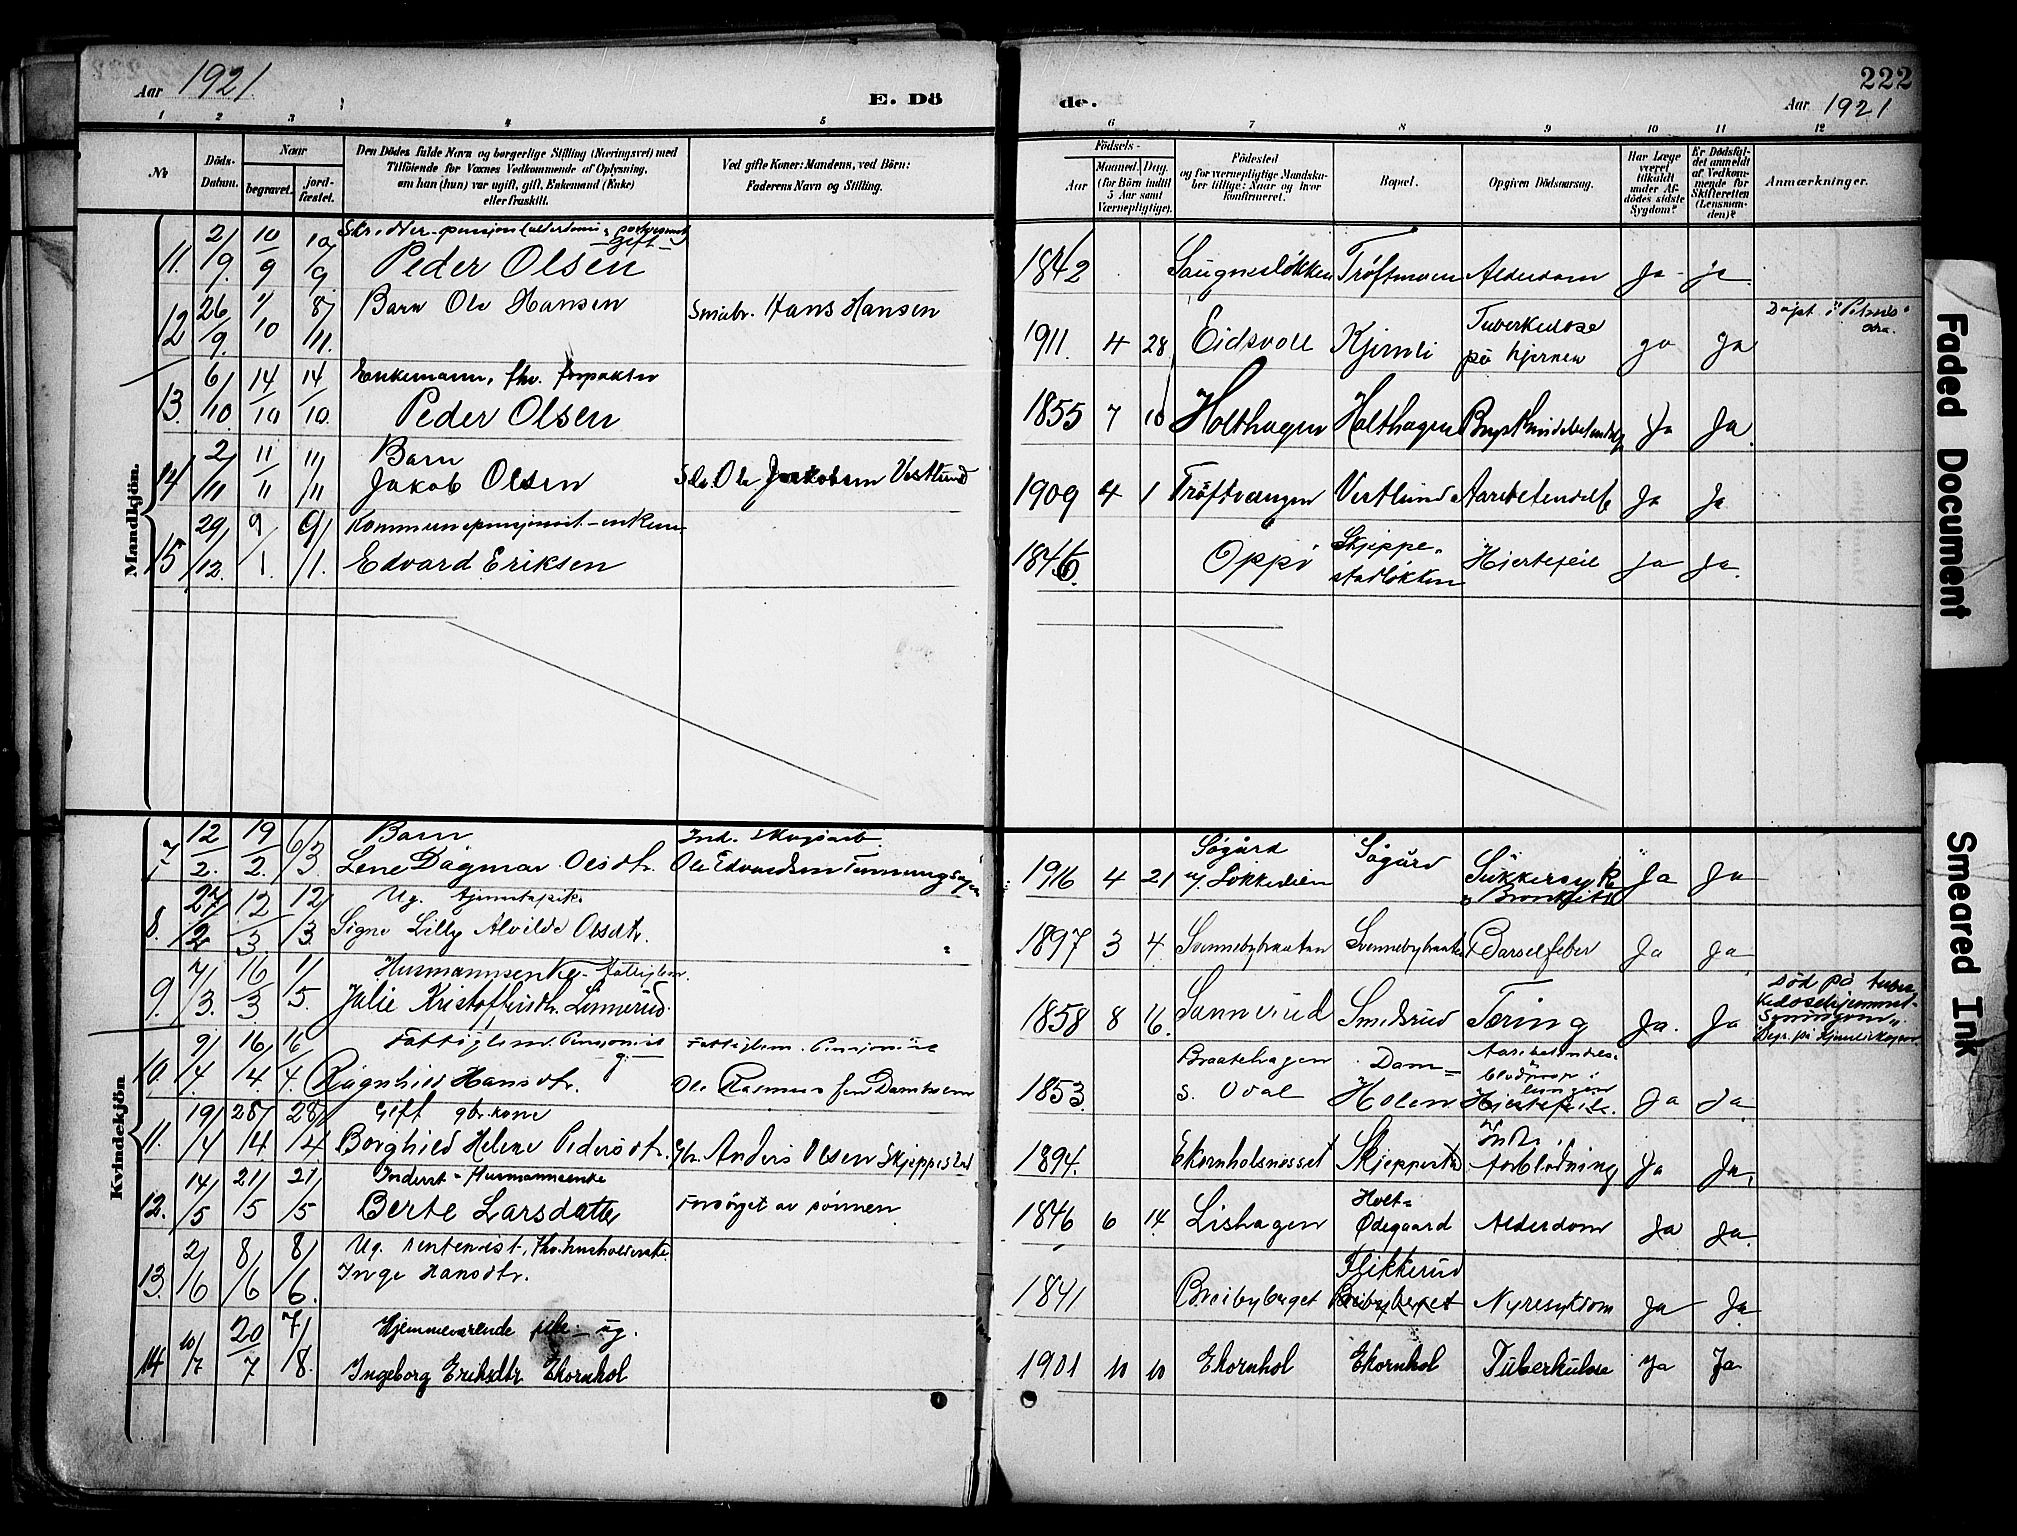 Aar 1921
E. Dö
de.
222
Aar 1921
1 2 3 4 5 6 7 8 9 10 11 12
No
Döds-Datum.
Naar
begravet.
jord-fæstet.
Den Dödes fulde Navn og borgerlige Stilling (Næringsvei) med
Tilföiende for Voxnes Vedkommende af Oplysning,
om han (hun) var ugift, gift, Enkemand (Enke)
eller fraskilt.
Ved gifte Koner: Mandens, ved Börn:
Faderens Navn og Stilling.
Födsels-
Aar
Maaned. Dag.
(for Börn indtil
5 Aar samt
Værnepligtige).
Födested
og for værnepligtige Mandska-
ber tillige: Naar og hvor
konfirmeret.
Bopæl.
Opgiven Dödsaarsag.
Har Læge
været
tilkaldt
under Af-
dödes sidste
Sygdom?
Er Dödsfal-
det anmeldt
af Vedkom-
mende for
Skifteretten
(Lensman-
den)?
Anmærkninger.
Mandkjön.
11. 2/9. 10/9 10/9. gift
Peder Olsen
1842 Trøftmoen Alderdom Ja ja
12 26/9. 1/10 8/11. Barn Ole Hansen
Småbr. Hans Hansen
1911. 4 28 Eidsvoll Kjernli Tuberkulose
på hjernen ja Ja
13. 6/10. 14/10 14/10. Enkemann, fhv. forpakter
Peder Olsen
1855 7 10 Holthagen Holthagen Ja Ja
14 2/11 11/11 11/11 Barn
Jakob Olsen
Ole Jackobsen Vestlund
1909 4 1 Trøftvangen Vestlund Ja Ja
15 29/12. 9/1. 9/1.
Edvard Eriksen
1846. Oppi Skjeppe-
stadløkken Hjertefeil Ja Ja.
Kvindekjön
7 12/2. 19/2. 6/3 Barn
Lene Dagmar Olsdtr.
Ind. skogsarb.
1916 4 21 Søgård
Søgård Sukkersyke
Bronkitt Ja Ja
8. 27/2 12/3. 12/3. Ug. tjenestepike
Signe Lilly Alvilde Olsdtr.
1897 3 4 Svennebybraaten Svennebybraaten Barselfeber Ja Ja
9. 7/3. 16/3 1/5 Husmannsenke - fattiglem.
Julie Kristoffersdtr. Linnerud.
1858 8 16. Smedsrud Tæring Ja. Ja
død på tuber-
kulosehjemmet
10. 9/4. 16/4. 16/4. Fattiglem. Pensjonist
Ragnhild Hansdtr.
Fattiglem. Pensjonist
1853. Braatehagen
s. Odal
Dam=
Holen Hjertefeil. Ja Ja.
11. 19/4 28/4 28/4 Gift gbr.kone
Borghild Helene Pedersdtr.
Gbr. Anders Olsen Skjeppestad
1894. Ekornholsnesset Skjeppestad
forblødning Ja Ja.
12. 14/5 21/5 21/5 Inderst - Husmannsenke
Berte Larsdatter
Forsørget av sønnen
1846 6 14. Lishagen Holt=
Ødegaard Alderdom Ja Ja.
13. 2/6 8/6 8/6. Ug. rentenist, fhv. husholderske
Inge Hansdtr.
1841 Breibyberget Flikkerud
Breibyberget Nyresykdom Ja Ja.
14 10/7 20/7 7/8. Hjemmeværende pike - ug.
Ingeborg Eriksdtr Ekornhol
1901 10 10 Ekornhol Ekornhol Tuberkulose Ja Ja
Faded Document
Smeared Ink